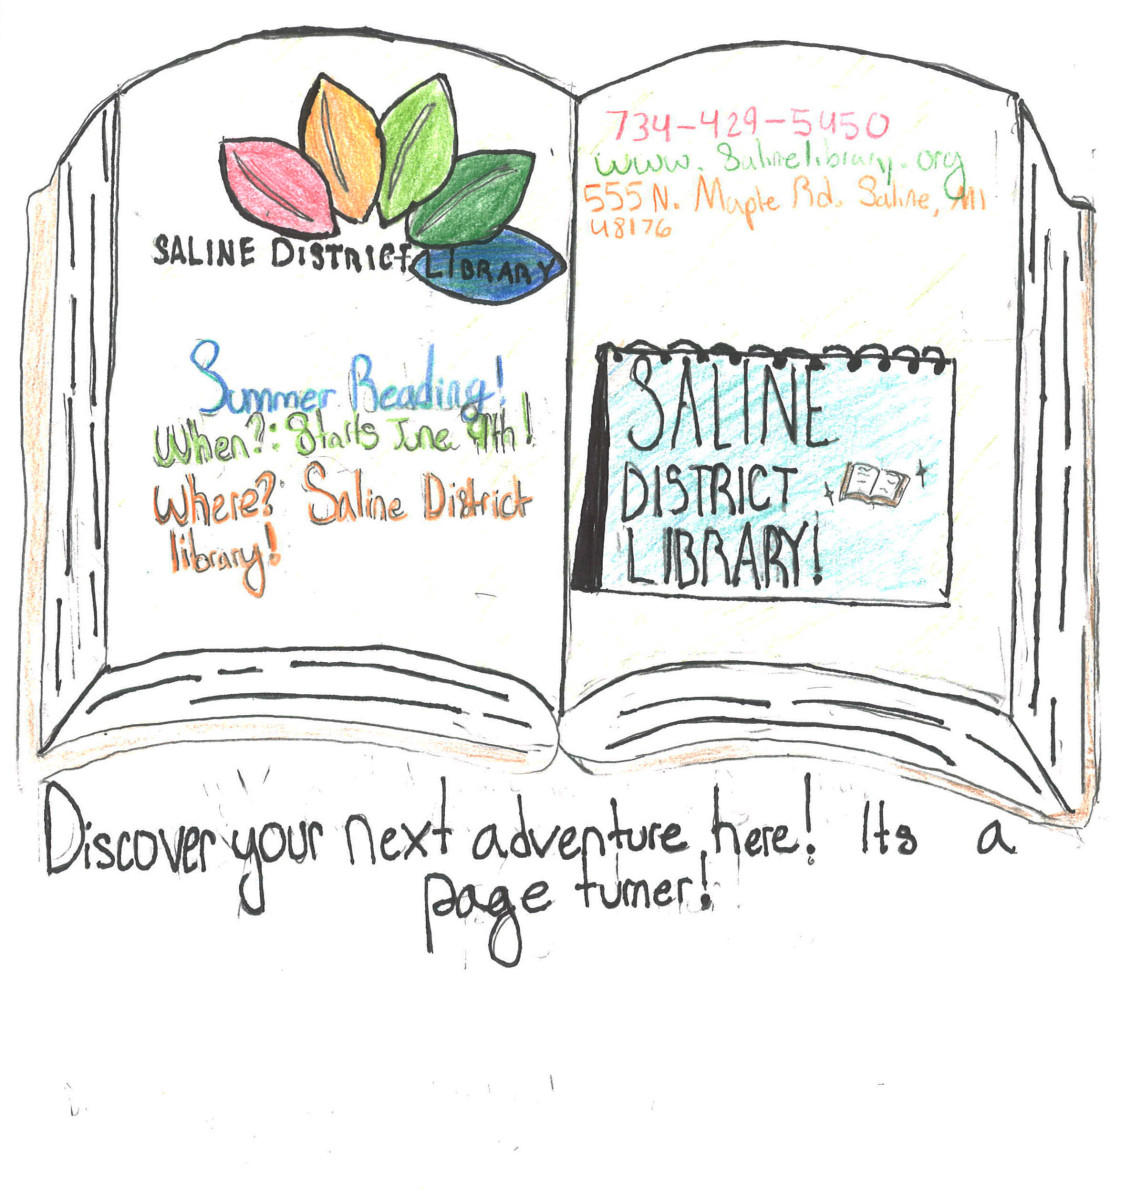 SALINE DISTRICT LIBRARY
Summer Reading!
When?: Starts June
Where?: Saline District
library!
734-429-5450
www.salinelibrary.org
555 N. Maple Rd. Saline, MI
48176
SALINE
DISTRICT
LIBRARY!
Discover your next adventure here! Its a
page turner!